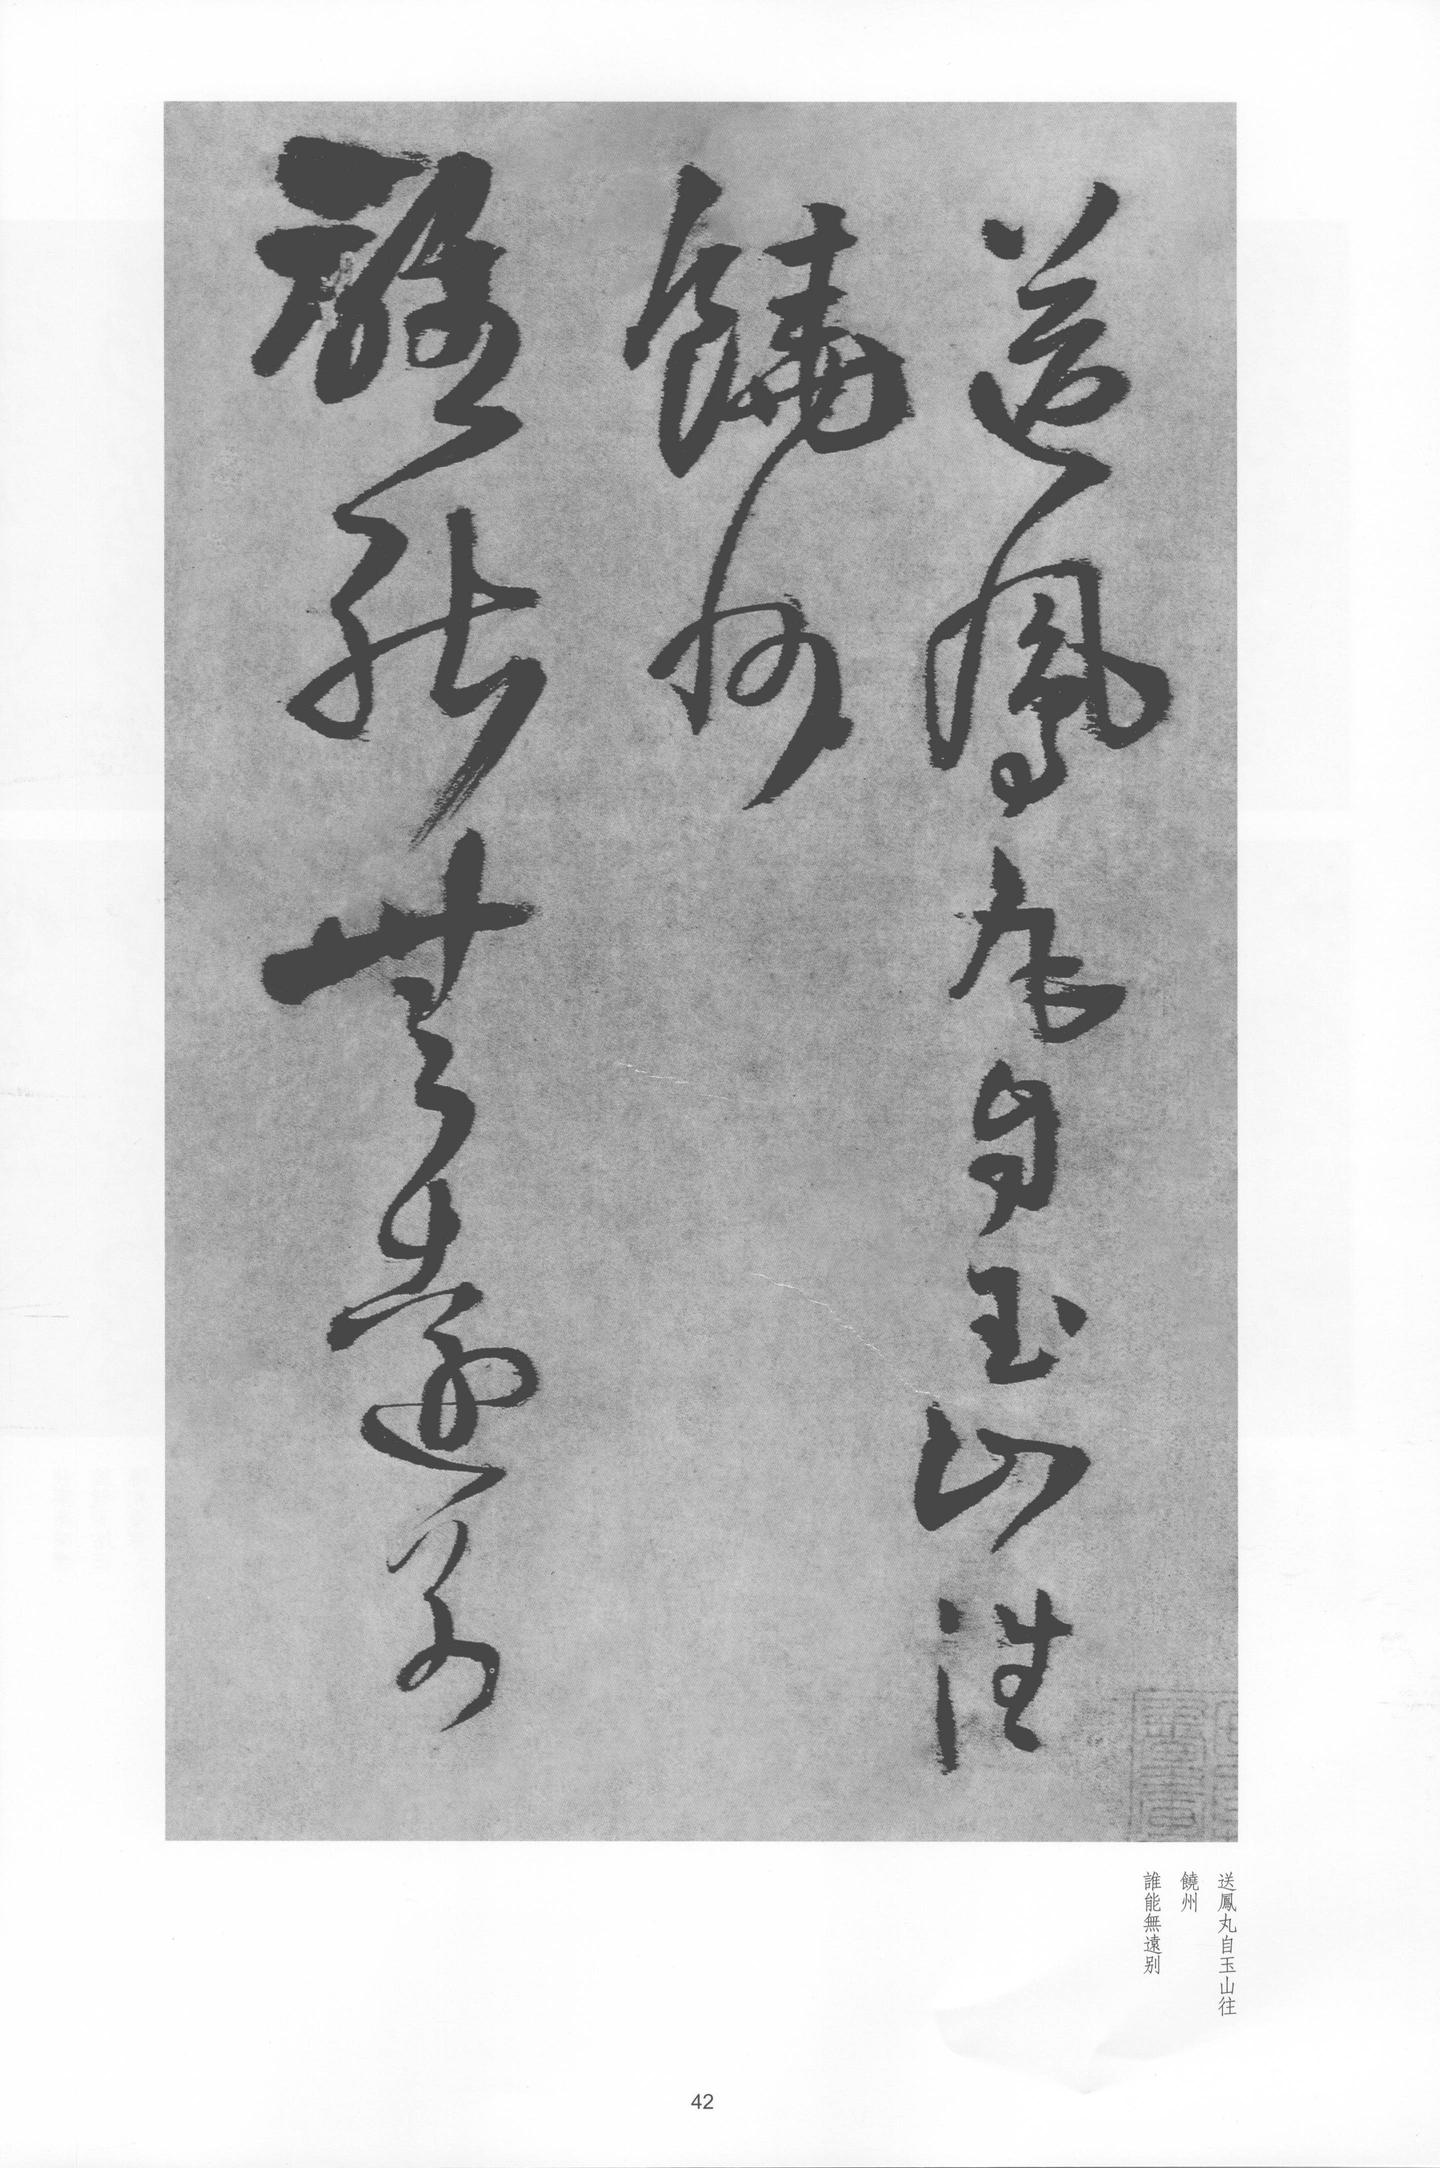 送鳳丸自玉山往
饒州
誰能無遠别
送鳳丸自玉山往
饒州
誰能無遠别
42